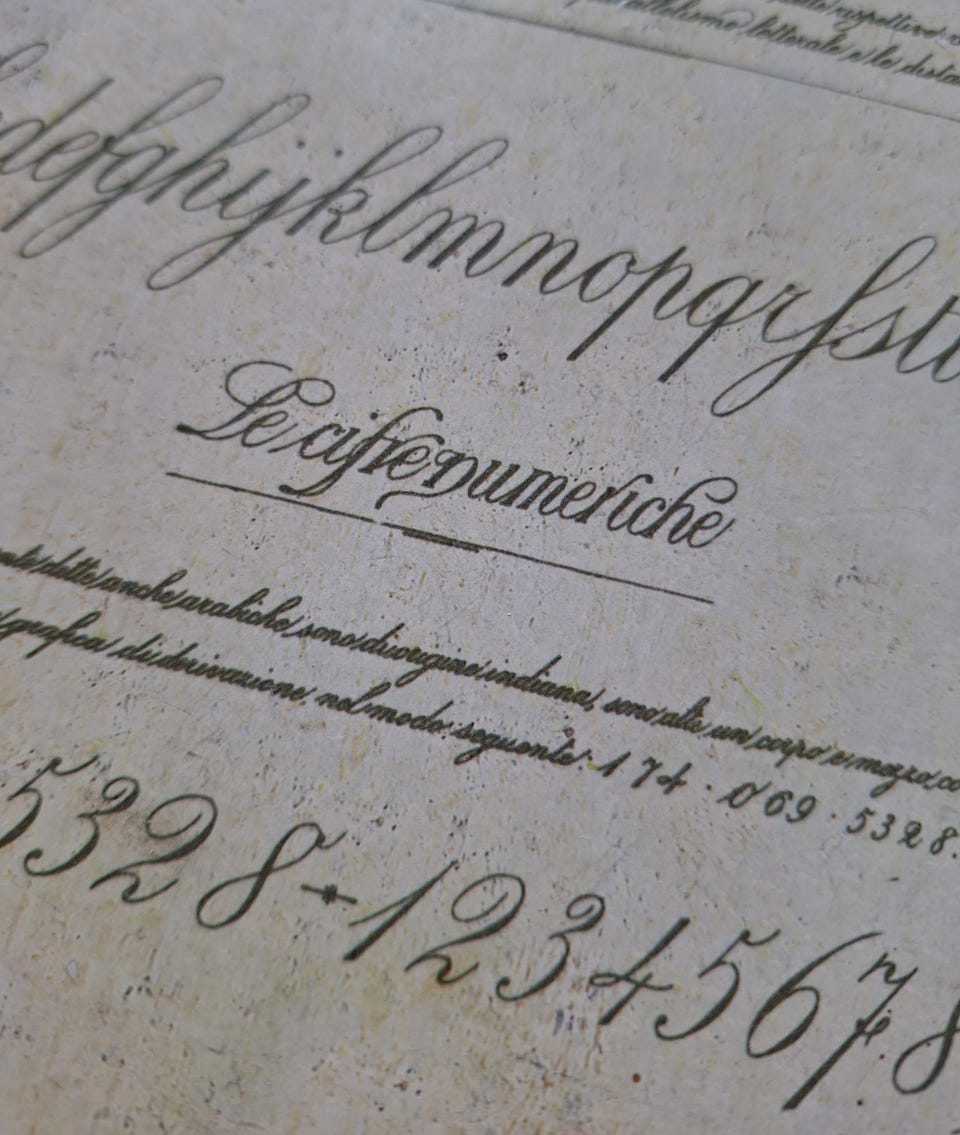 rispettivo
letterale e la dista
defghijklmnopqrſst
Le cifre numeriche
dette anche arabiche, sono di origine indiana, sono alte un corpo e mezzo co
grafica di derivazione, nel modo seguente: 1 7 4 · 0 6 9 · 5 3 2 8.
5 3 2 8 - 1 2 3 4 5 6 7 8